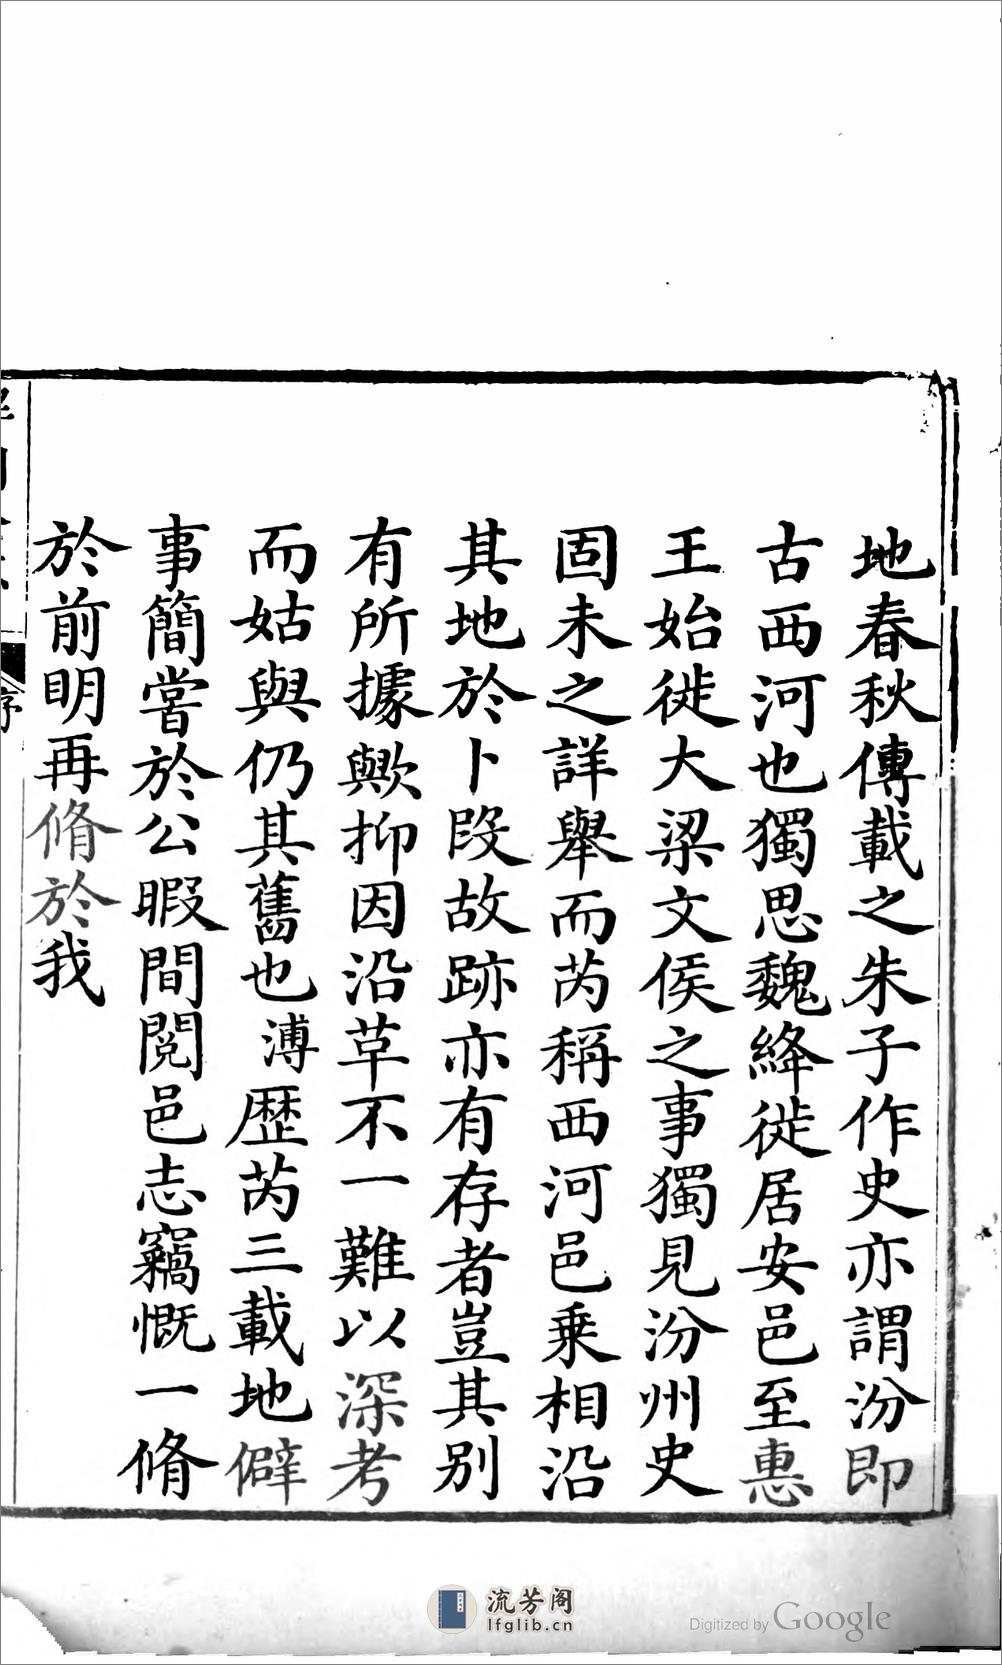 地春秋傳載之朱子作史亦謂汾即
古西河也獨思魏絳徙居安邑至惠
王始徙大梁文侯之事獨見汾州史
固未之詳舉而芮稱西河邑乗相沿
其地於卜段故跡亦有存者豈其别
有所據歟抑因沿革不一難以深考
而姑與仍其舊也溥歷芮三載地僻
事簡嘗於公暇間閲邑志竊慨一脩
於前明再脩於我
序
流芳阁
lfglib.cn
Digitized by Google